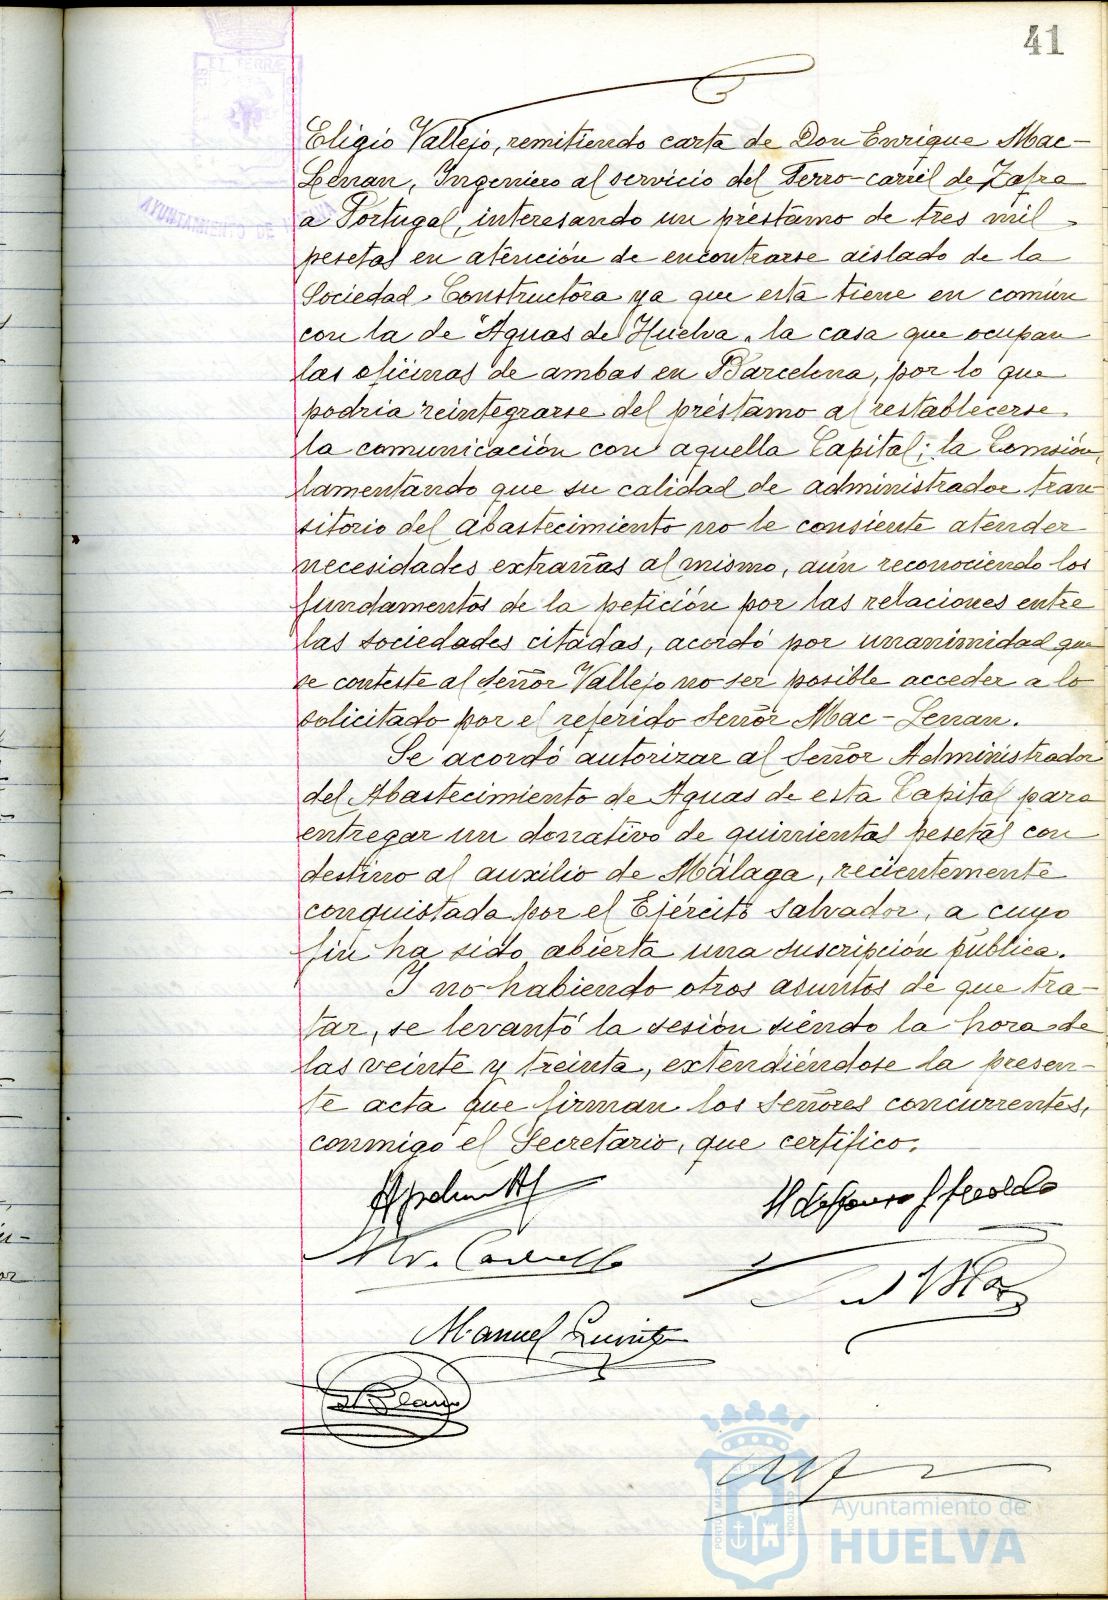 41
ET TERRÆ
AYUNTAMIENTO DE
Eligio Vallejo, remitiendo carta de Don Enrique Mac-
Lenan, Ingeniero al servicio del Ferro-carril de Zafra
a Portugal, interesando un préstamo de tres mil
pesetas en atención de encontrarse aislado de la
Sociedad Constructora ya que esta tiene en común
con la de "Aguas de Huelva" la casa que ocupan
las oficinas de ambas en Barcelona, por lo que
podría reintegrarse del préstamo al restablecerse
la comunicación con aquella Capital; la Comisión,
lamentando que su calidad de administrador tran-
sitorio del abastecimiento no le consiente atender
necesidades extrañas al mismo, aún reconociendo los
fundamentos de la petición por las relaciones entre
las sociedades citadas, acordó por unanimidad que
se conteste al Señor Vallejo no ser posible acceder a lo
solicitado por el referido Señor Mac-Lenan.
Se acordó autorizar al Señor Administrador
del Abastecimiento de Aguas de esta Capital para
entregar un donativo de quinientas pesetas con
destino al auxilio de Málaga, recientemente
conquistada por el Ejército Salvador, a cuyo
fin ha sido abierta una suscripción pública.
Y no habiendo otros asuntos de que tra-
tar, se levantó la sesión siendo la hora de
las veinte y treinta, extendiéndose la presen-
te acta que firman los Señores concurrentes,
conmigo el Secretario, que certifico.
Manuel
Ayuntamiento de
HUELVA